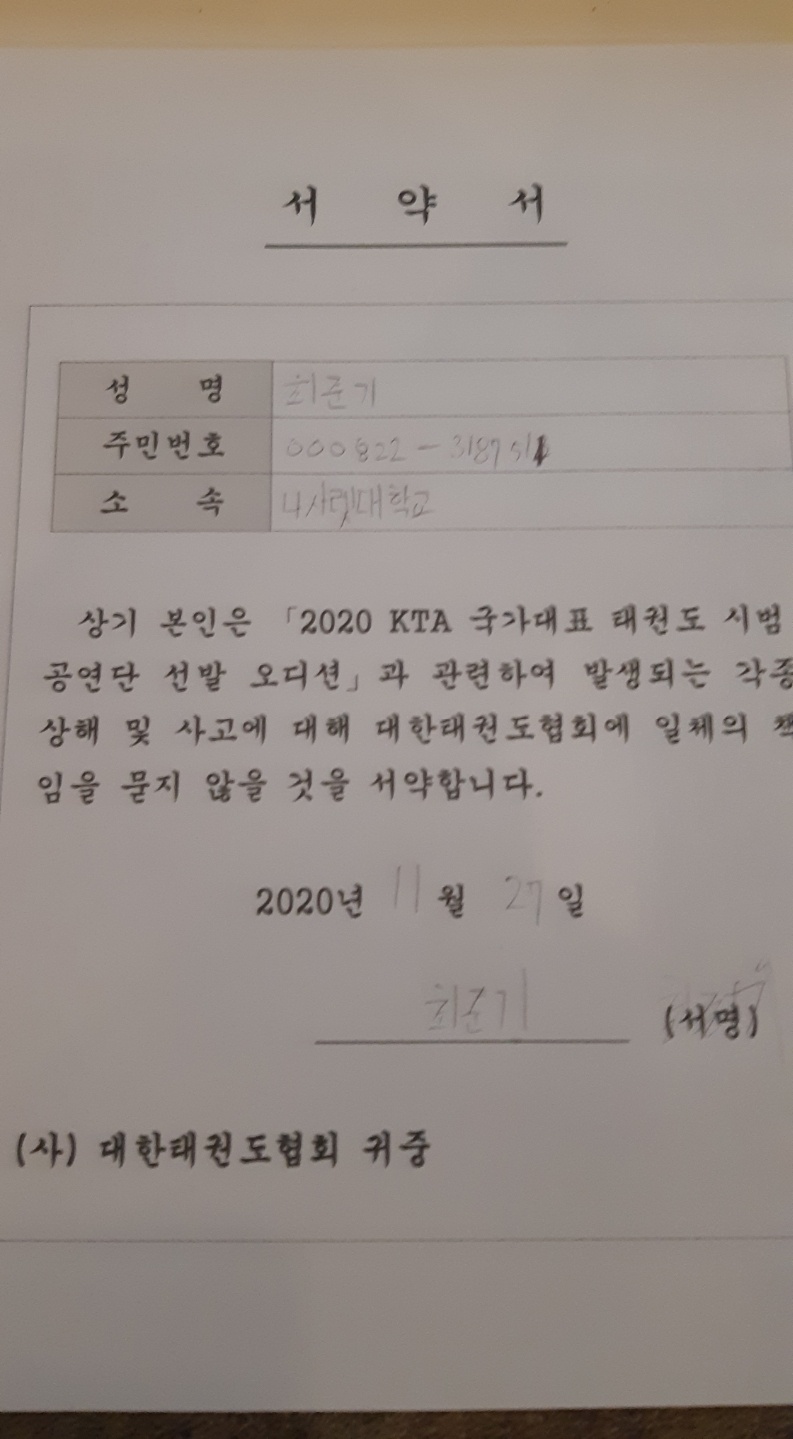 서 약 서
성 명 최준기
주민번호 000822 -
소 속 나사렛대학교
상기 본인은 「2020 KTA 국가대표 태권도 시범
공연단 선발 오디션」과 관련하여 발생되는 각종
상해 및 사고에 대해 대한태권도협회에 일체의 책
임을 묻지 않을 것을 서약합니다.
2020년 11월 27일
최준기 (서명)
(사) 대한태권도협회 귀중